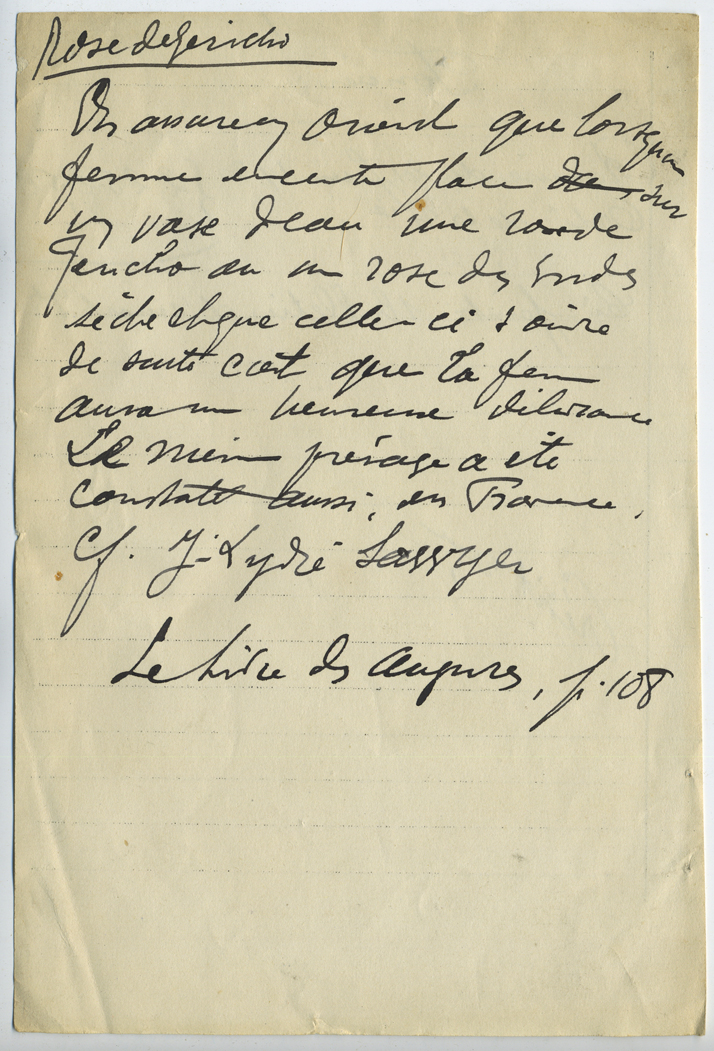 Rose de Jericho
On assure en Orient que lorsqu'une
femme enceinte place sur
un vase d'eau une rose de
Jericho ou une rose des Indes
sèche et que celle-ci s'ouvre
de suite c'est que la femme
aura une heureuse délivrance
Le même présage a été
constaté aussi, en Provence.
Cf. J. Lydie Sawyer
Le Livre des Augures, p. 108